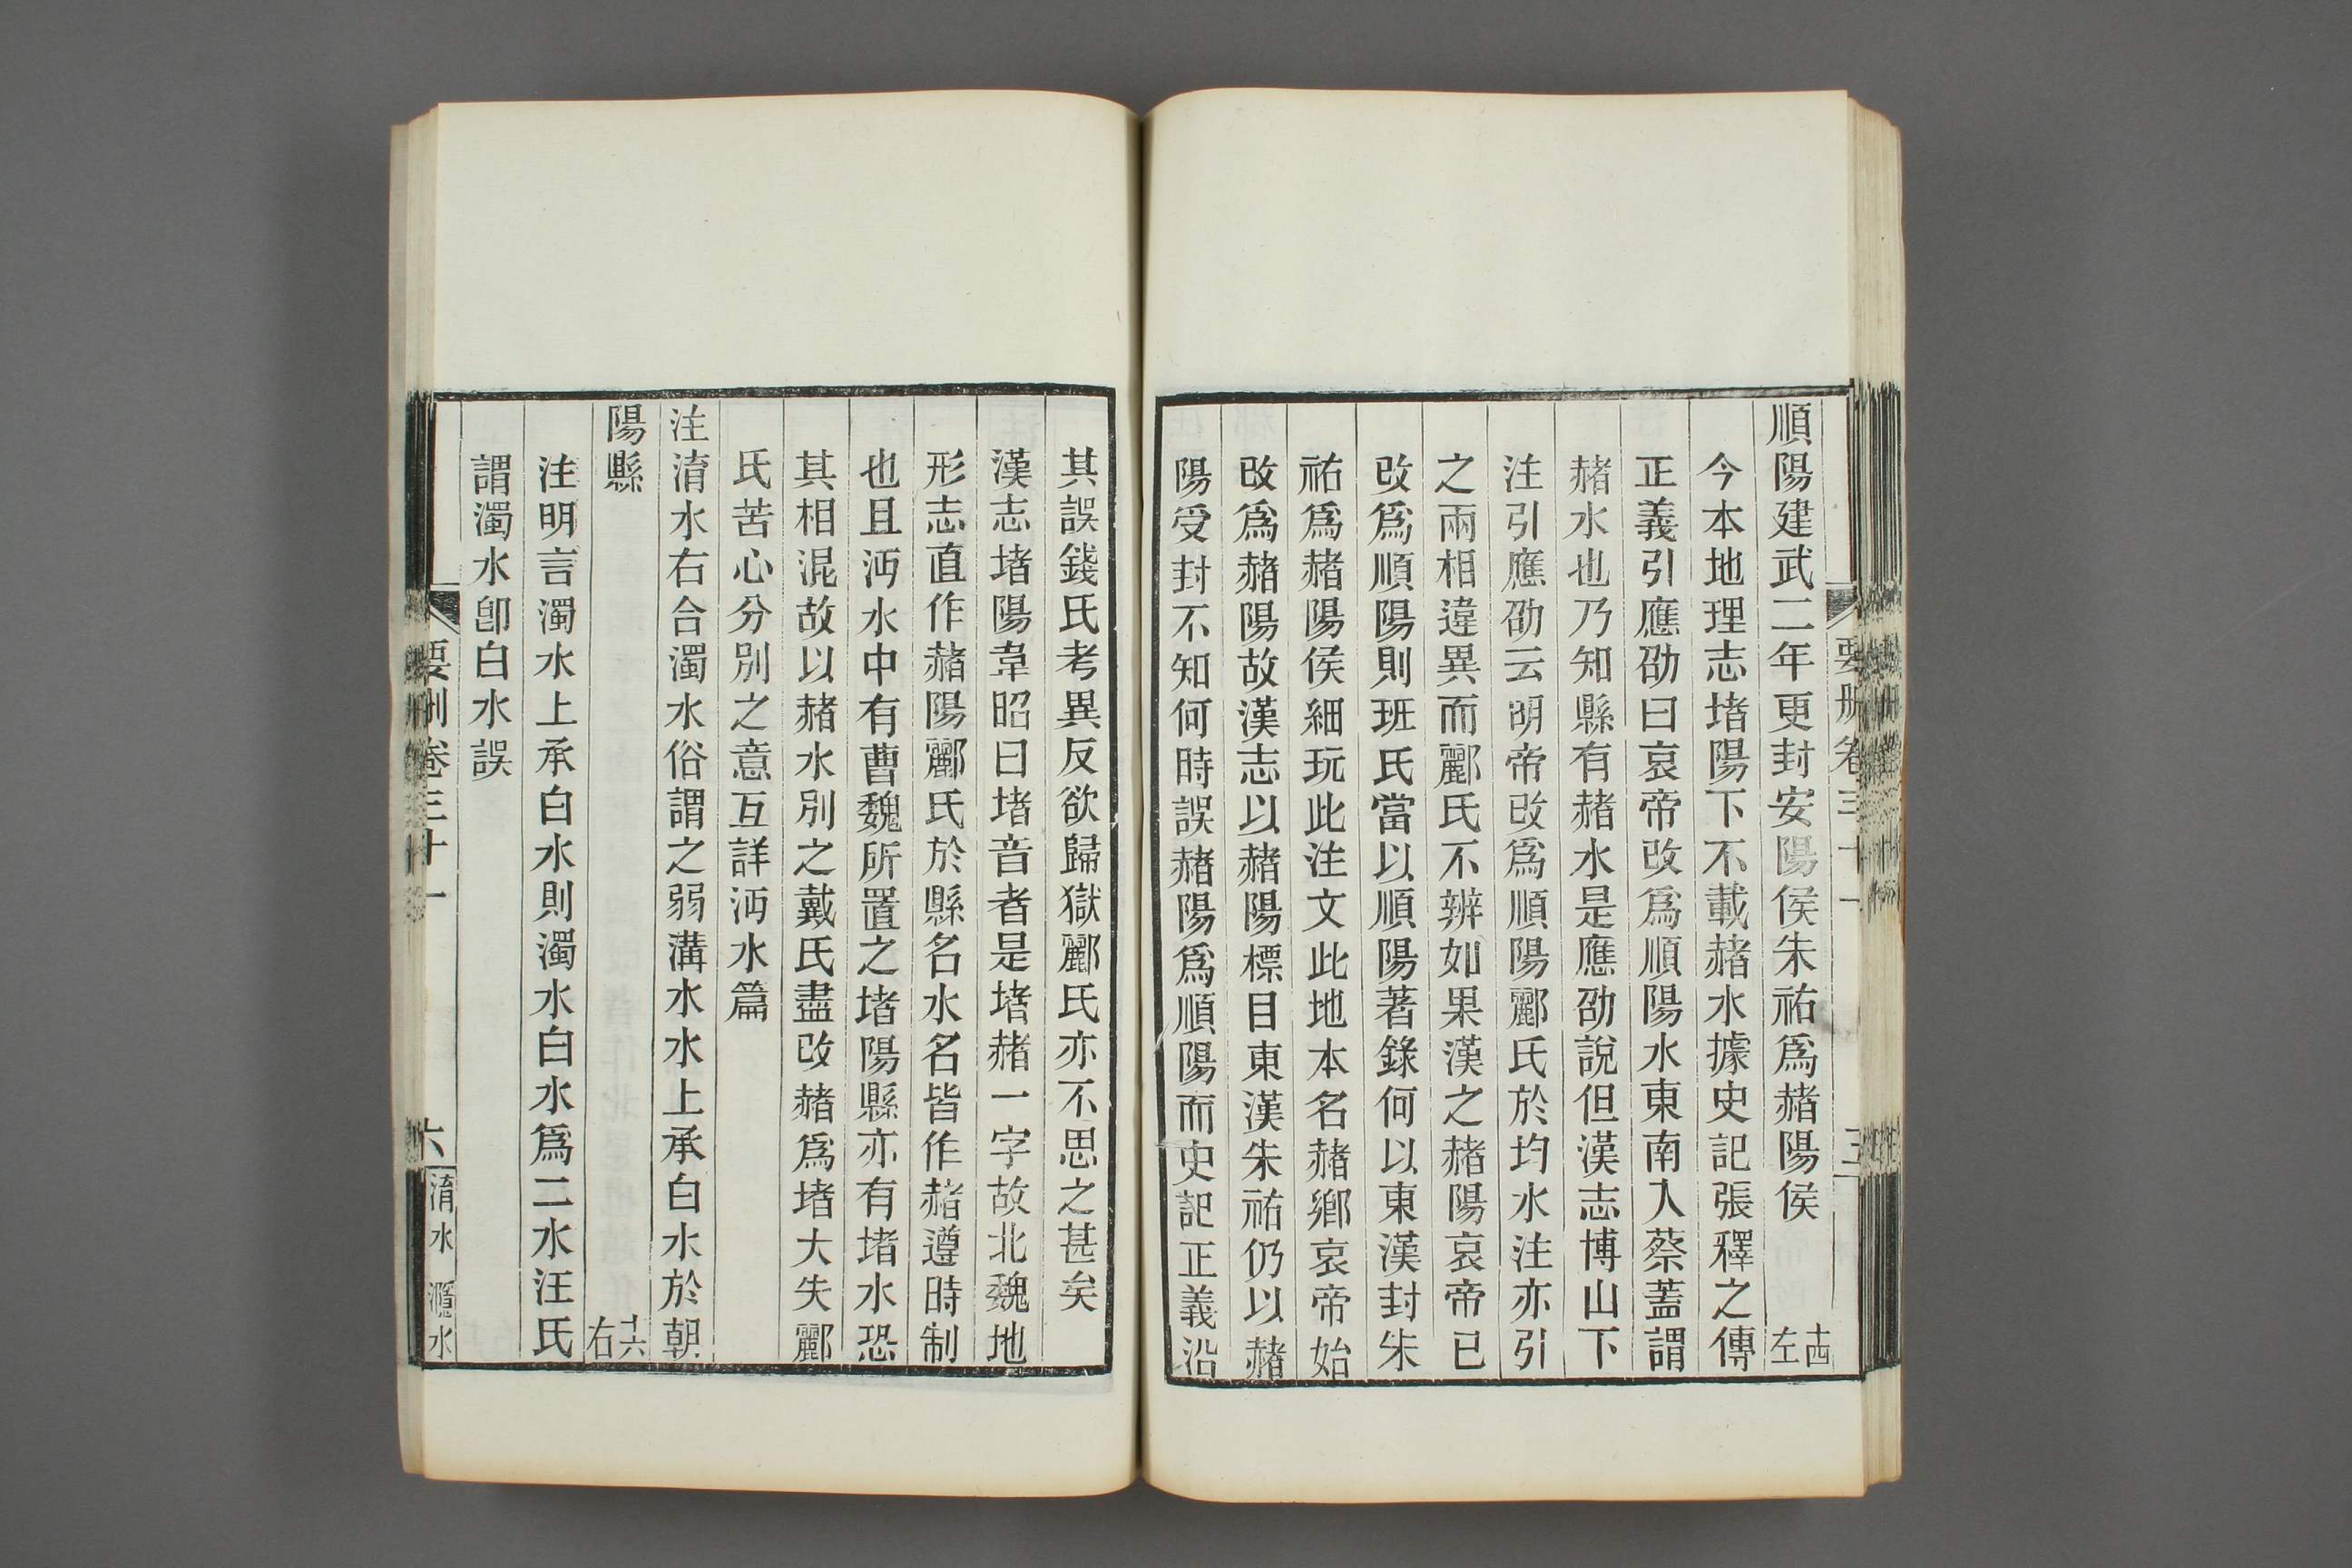 順陽建武二年更封安陽侯朱祐爲赭陽侯 十四左
今本地理志堵陽下不載赭水據史記張釋之傳
正義引應劭曰哀帝改爲順陽水東南入蔡蓋謂
赭水也乃知縣有赭水是應劭說但漢志博山下
注引應劭云明帝改爲順陽酈氏於均水注亦引
之兩相違異而酈氏不辨如果漢之赭陽哀帝已
改爲順陽則班氏當以順陽著錄何以東漢封朱
祐爲赭陽侯細玩此注文此地本名赭鄉哀帝始
改爲赭陽故漢志以赭陽標目東漢朱祐仍以赭
陽受封不知何時誤赭陽爲順陽而史記正義沿
其誤錢氏考異反欲歸獄酈氏亦不思之甚矣
漢志堵陽韋昭曰堵音者是堵赭一字故北魏地
形志直作赭陽酈氏於縣名水名皆作赭遵時制
也且沔水中有曹魏所置之堵陽縣亦有堵水恐
其相混故以赭水別之戴氏盡改赭爲堵大失酈
氏苦心分別之意互詳沔水篇
注淯水右合濁水俗謂之弱溝水水上承白水於朝
陽縣 十六右
注明言濁水上承白水則濁水白水爲二水汪氏
謂濁水卽白水誤
要刪卷三十一
六 淯水 㶏水